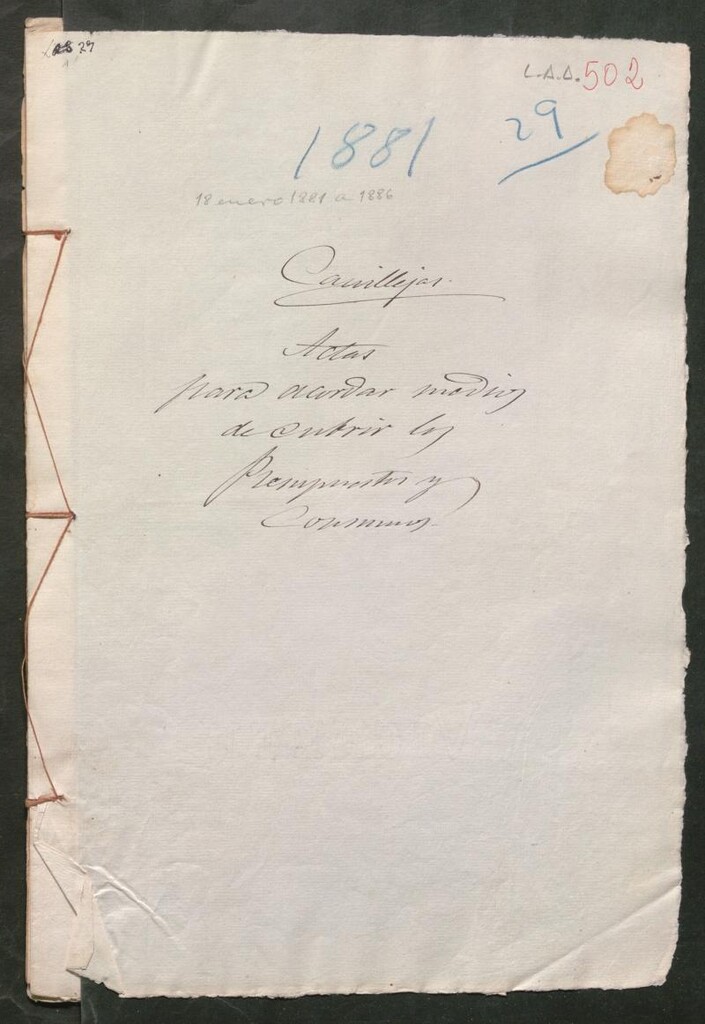 29
L.A.A. 502
1881 29
18 enero 1881 a 1886
Canillejas.
Actas
para acordar medios
de cubrir los
Presupuestos y
Consumos.